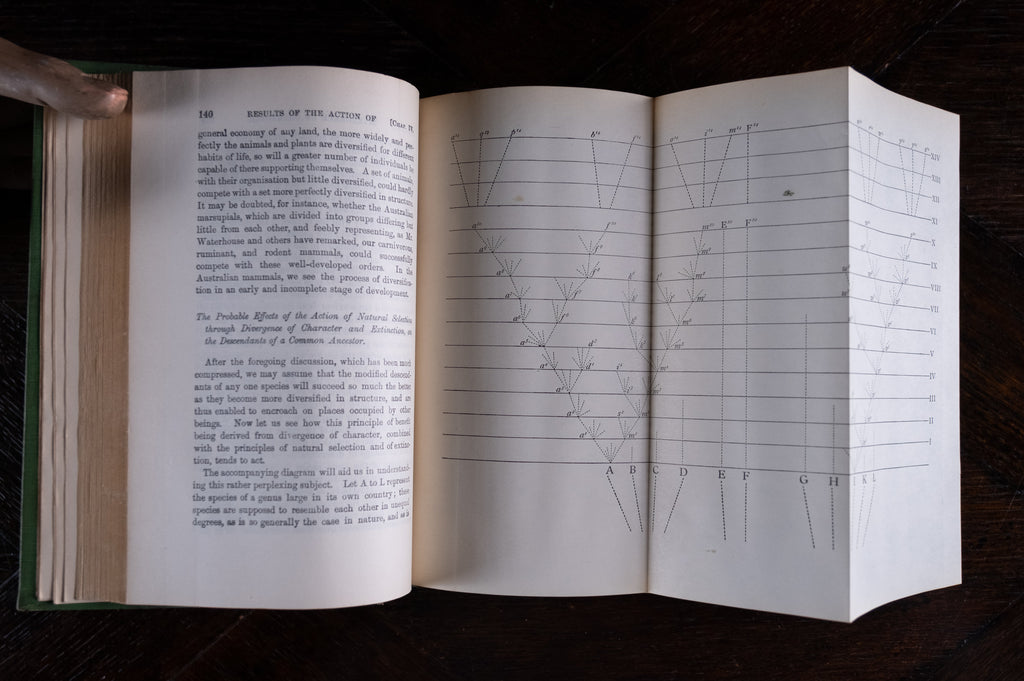 140 RESULTS OF THE ACTION OF [CHAP. IV.
general economy of any land, the more widely and per-
fectly the animals and plants are diversified for different
habits of life, so will a greater number of individuals be
capable of there supporting themselves. A set of animals,
with their organisation but little diversified, could hardly
compete with a set more perfectly diversified in structure.
It may be doubted, for instance, whether the Australian
marsupials, which are divided into groups differing but
little from each other, and feebly representing, as Mr.
Waterhouse and others have remarked, our carnivorous,
ruminant, and rodent mammals, could successfully
compete with these well-developed orders. In the
Australian mammals, we see the process of diversifica-
tion in an early and incomplete stage of development.
The Probable Effects of the Action of Natural Selection
through Divergence of Character and Extinction, on
the Descendants of a Common Ancestor.
After the foregoing discussion, which has been much
compressed, we may assume that the modified descend-
ants of any one species will succeed so much the better
as they become more diversified in structure, and are
thus enabled to encroach on places occupied by other
beings. Now let us see how this principle of benefit
being derived from divergence of character, combined
with the principles of natural selection and of extinc-
tion, tends to act.
The accompanying diagram will aid us in understand-
ing this rather perplexing subject. Let A to L represent
the species of a genus large in its own country; these
species are supposed to resemble each other in unequal
degrees, as is so generally the case in nature, and as is
a¹⁴ q¹⁴ p¹⁴ b¹⁴ f¹⁴ o¹⁴ i¹⁴ m¹⁴ F¹⁴
XIV
XIII
XII
XI
a¹⁰ f¹⁰ m¹⁰ E¹⁰ F¹⁰
X
IX
VIII
VII
VI
V
IV
III
II
I
A B C D E F G H I K L